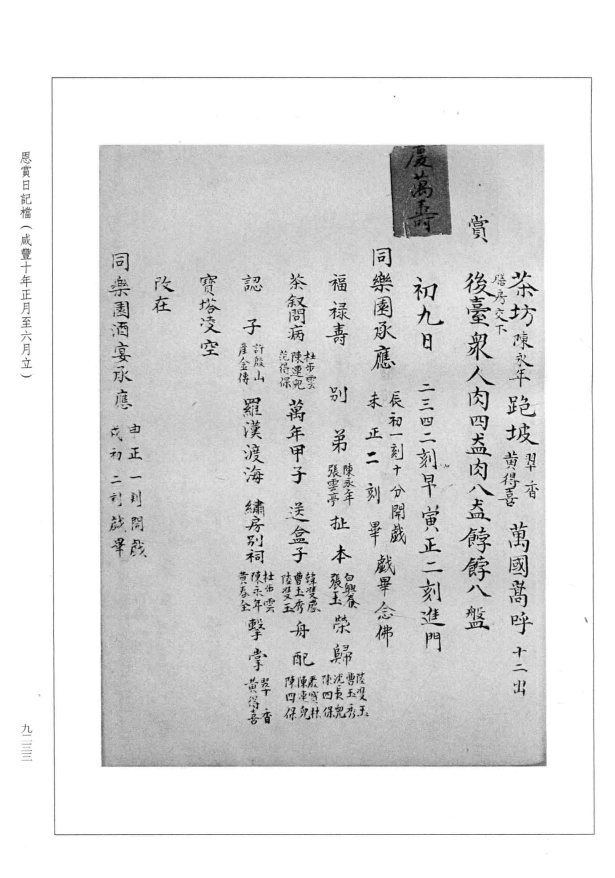 茶坊 陳永年 跪坡 翠香 黄得喜 萬國嵩呼 十二出
膳房交下
賞
後臺衆人肉四盉肉八盉餑餑八盤
慶萬壽
初九日 二三四二刻早寅正二刻進門
同樂園承應 辰初一刻十分開戲 未正二刻畢 戲畢念佛
福禄壽 别弟 陳永年 張雲亭 扯本 張玉 榮歸 陸雙玉 曹玉秀 沈長兒 陳四保
茶叙問病 杜步雲 陳連兒 范得保 萬年甲子 送盒子 韓雙慶 曹玉秀 陸雙玉 舟配 嚴寳林 陳連兒 陳四保
認子 許殿山 産金傳 羅漢渡海 繡房别祠 杜步雲 陳永年 黄春全 擊掌 翠香 黄得喜
寶塔凌空
改在
同樂園酒宴承應 申正一刻開戲 戌初二刻戲畢
恩賞日記檔（咸豐十年正月至六月立）
九二三三